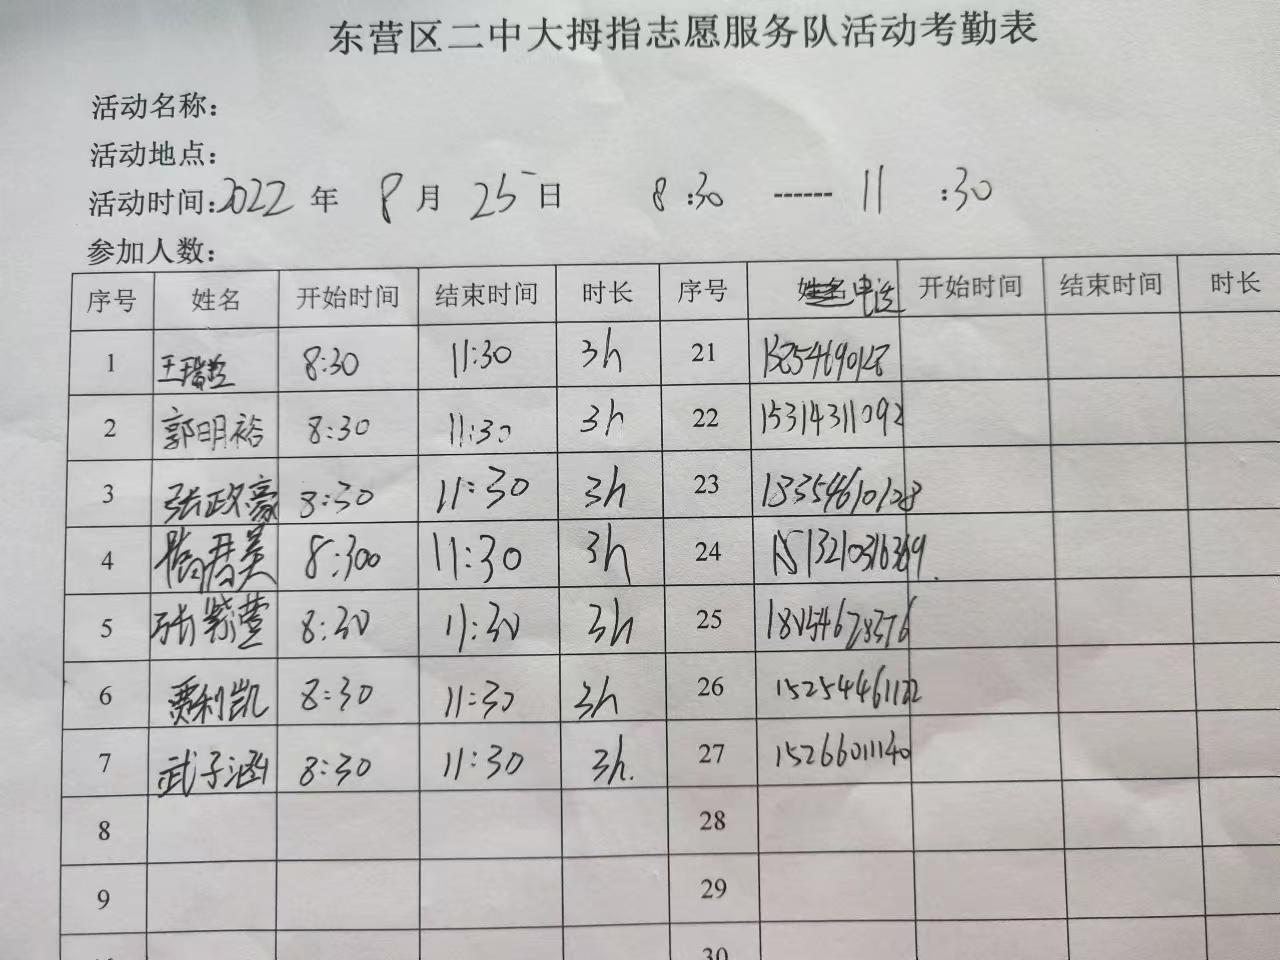 东营区二中大拇指志愿服务队活动考勤表
活动名称：
活动地点：
活动时间：2022 年 8 月 25 日 8 :30 ------ 11 :30
参加人数：
序号 姓名 开始时间 结束时间 时长 序号 姓名 电话 开始时间 结束时间 时长
1 8:30 11:30 3h 21
2 郭明裕 8:30 11:30 3h 22 15314311092
3 张政豪 8:30 11:30 3h 23 18354610128
4 8:300 11:30 3h 24
5 张紫萱 8:30 11:30 3h 25
6 贾利凯 8:30 11:30 3h 26 15254461122
7 武子涵 8:30 11:30 3h. 27 15266011140
8 28
9 29
30